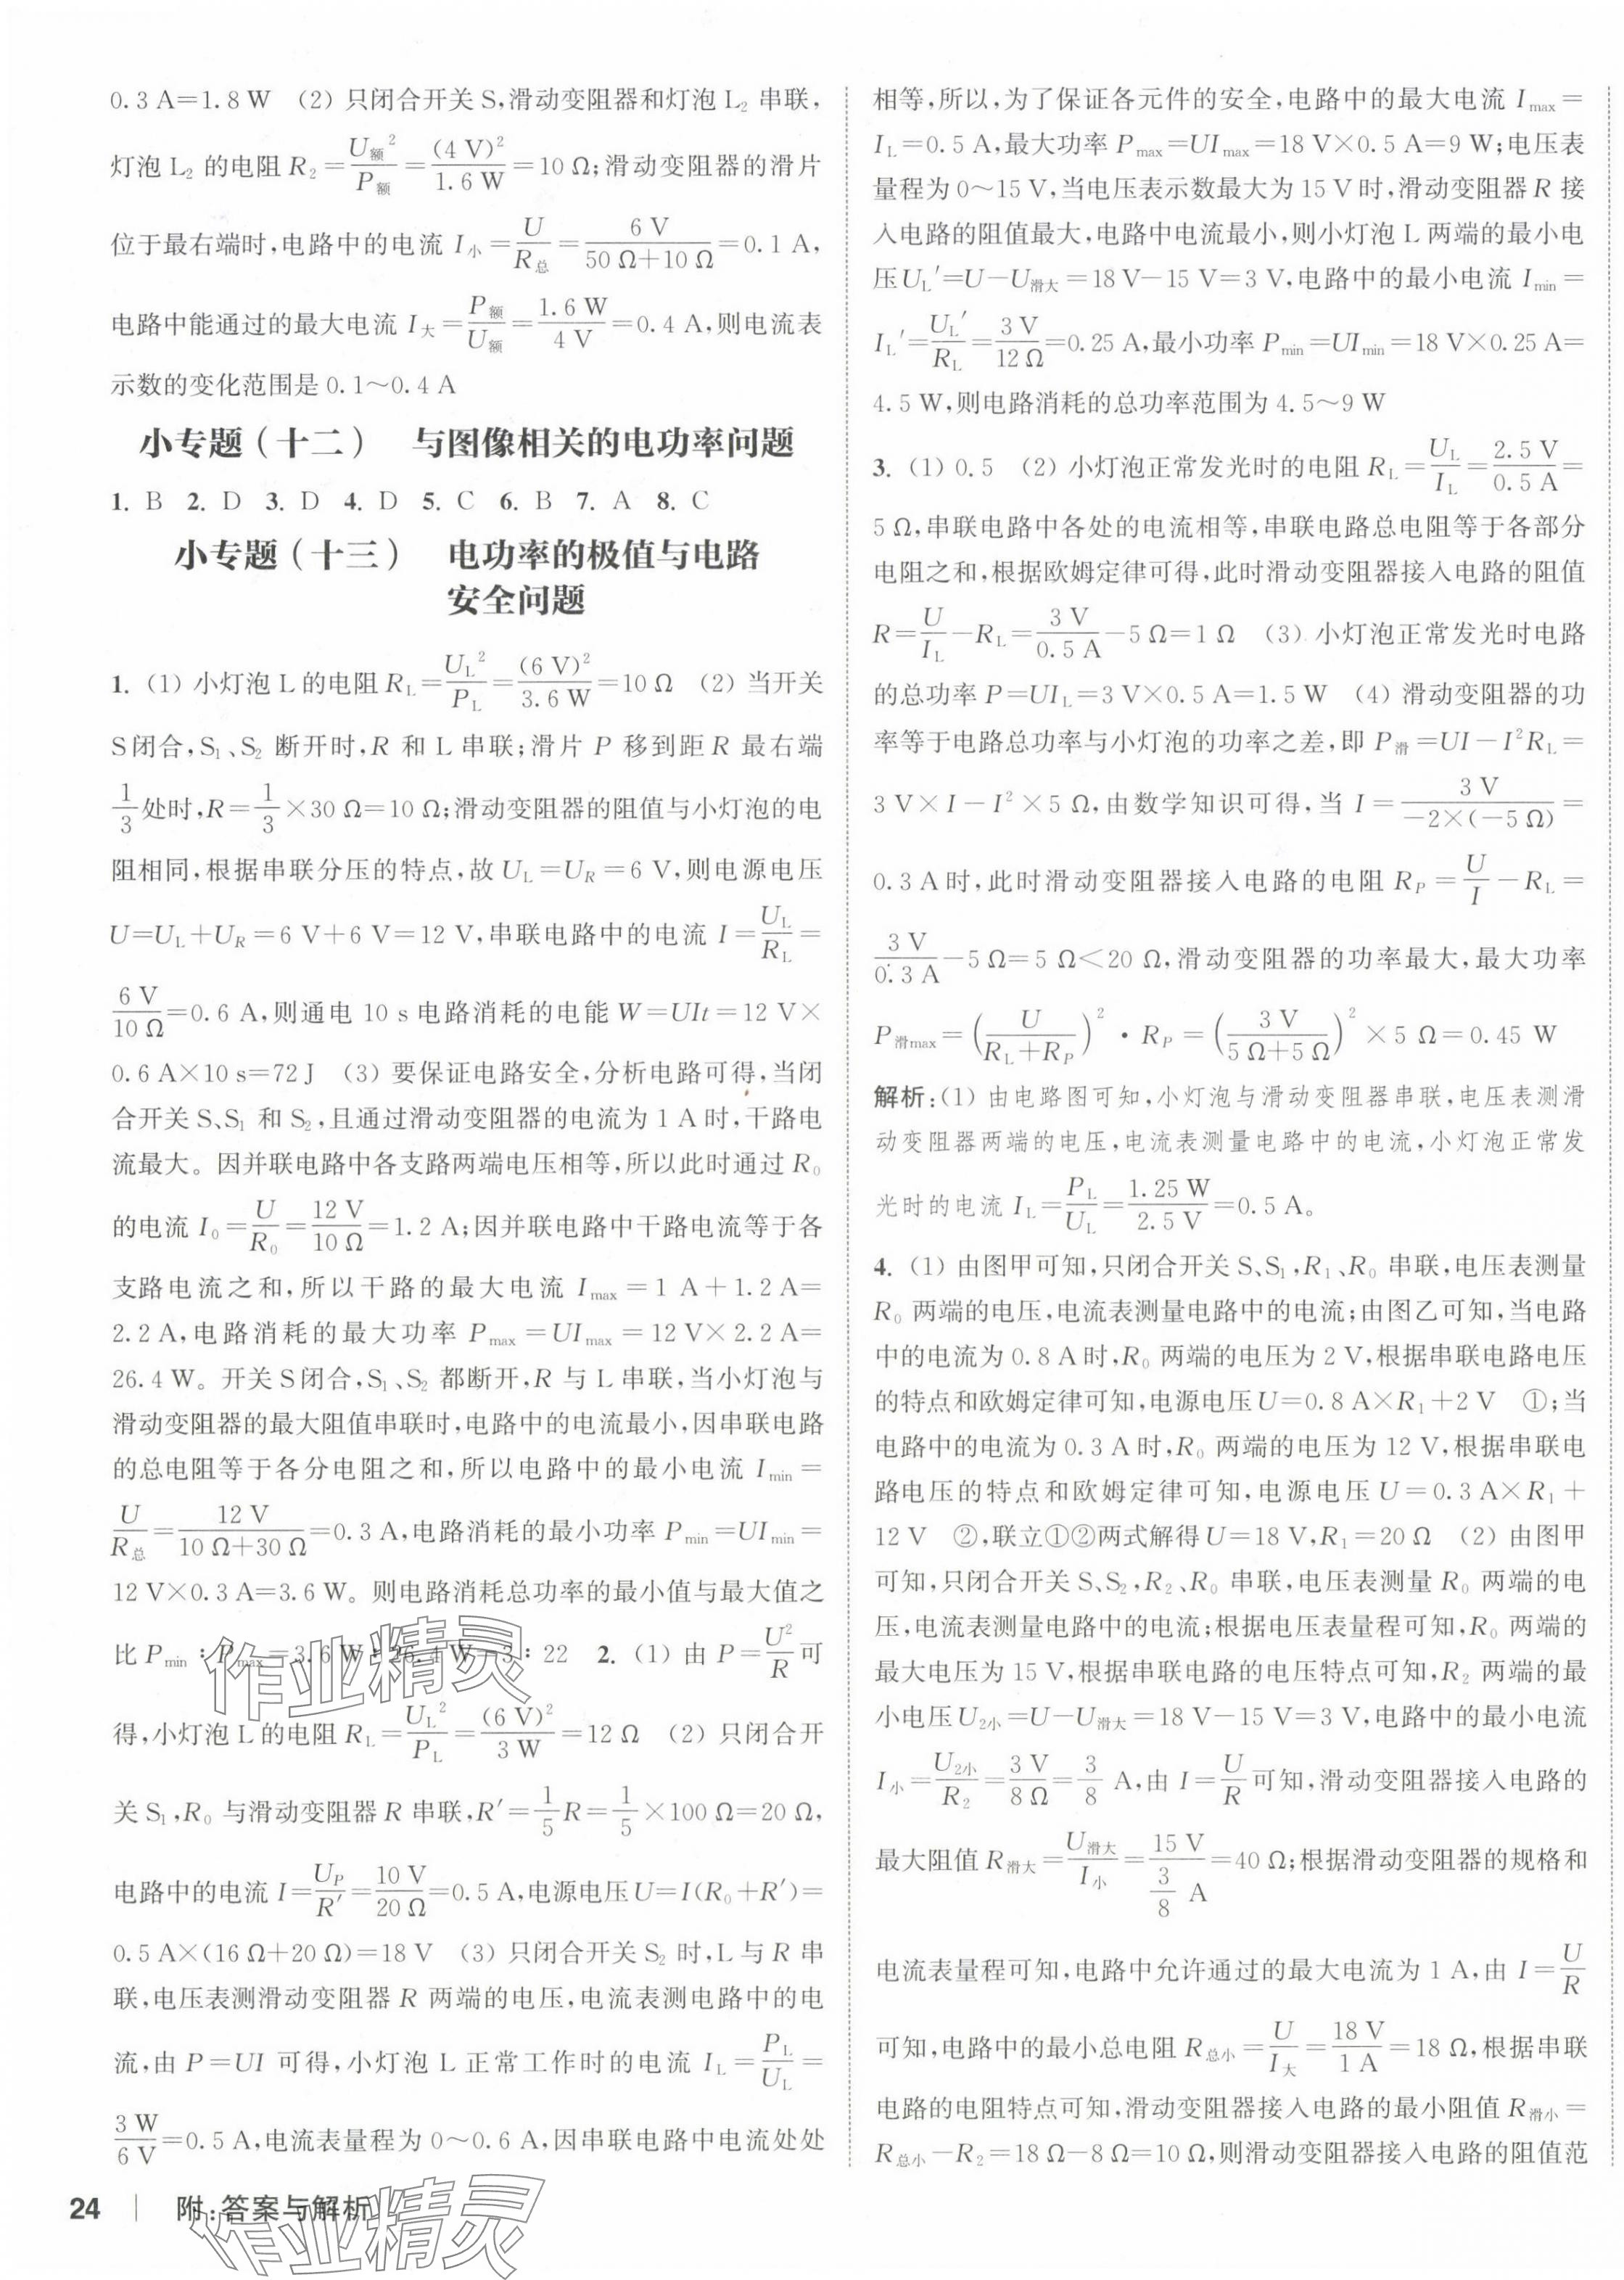 0.3 A=1.8 W (2) 只闭合开关 S,滑动变阻器和灯泡 L₂ 串联,
灯泡 L₂ 的电阻 R₂=U额²/P额=(4 V)²/1.6 W=10 Ω;滑动变阻器的滑片
位于最右端时,电路中的电流 I小=U/R总=6 V/(50 Ω+10 Ω)=0.1 A,
电路中能通过的最大电流 I大=P额/U额=1.6 W/4 V=0.4 A,则电流表
示数的变化范围是 0.1～0.4 A
小专题(十二) 与图像相关的电功率问题
1. B 2. D 3. D 4. D 5. C 6. B 7. A 8. C
小专题(十三) 电功率的极值与电路
安全问题
1. (1) 小灯泡 L 的电阻 R_L=U_L²/P_L=(6 V)²/3.6 W=10 Ω (2) 当开关
S闭合,S₁、S₂ 断开时,R 和 L 串联;滑片 P 移到距 R 最右端
1/3处时,R=1/3×30 Ω=10 Ω;滑动变阻器的阻值与小灯泡的电
阻相同,根据串联分压的特点,故 U_L=U_R=6 V,则电源电压
U=U_L+U_R=6 V+6 V=12 V,串联电路中的电流 I=U_L/R_L=
6 V/10 Ω=0.6 A,则通电 10 s 电路消耗的电能 W=UIt=12 V×
0.6 A×10 s=72 J (3) 要保证电路安全,分析电路可得,当闭
合开关 S、S₁ 和 S₂,且通过滑动变阻器的电流为 1 A 时,干路电
流最大。因并联电路中各支路两端电压相等,所以此时通过 R₀
的电流 I₀=U/R₀=12 V/10 Ω=1.2 A;因并联电路中干路电流等于各
支路电流之和,所以干路的最大电流 I_max=1 A+1.2 A=
2.2 A,电路消耗的最大功率 P_max=UI_max=12 V×2.2 A=
26.4 W。开关 S闭合,S₁、S₂ 都断开,R 与 L 串联,当小灯泡与
滑动变阻器的最大阻值串联时,电路中的电流最小,因串联电路
的总电阻等于各分电阻之和,所以电路中的最小电流 I_min=
U/R总=12 V/(10 Ω+30 Ω)=0.3 A,电路消耗的最小功率 P_min=UI_min=
12 V×0.3 A=3.6 W。则电路消耗总功率的最小值与最大值之
比 P_min∶P_max=3.6 W∶26.4 W=3∶22 2. (1) 由 P=U²/R可
得,小灯泡 L 的电阻 R_L=U_L²/P_L=(6 V)²/3 W=12 Ω (2) 只闭合开
关 S₁,R₀ 与滑动变阻器 R 串联,R′=1/5R=1/5×100 Ω=20 Ω,
电路中的电流 I=U_P/R′=10 V/20 Ω=0.5 A,电源电压U=I(R₀+R′)=
0.5 A×(16 Ω+20 Ω)=18 V (3) 只闭合开关 S₂ 时,L 与 R 串
联,电压表测滑动变阻器 R 两端的电压,电流表测电路中的电
流,由 P=UI 可得,小灯泡 L 正常工作时的电流 I_L=P_L/U_L=
3 W/6 V=0.5 A,电流表量程为 0～0.6 A,因串联电路中电流处处
24 附:答案与解析
相等,所以,为了保证各元件的安全,电路中的最大电流 I_max=
I_L=0.5 A,最大功率 P_max=UI_max=18 V×0.5 A=9 W;电压表
量程为 0～15 V,当电压表示数最大为 15 V 时,滑动变阻器 R 接
入电路的阻值最大,电路中电流最小,则小灯泡 L 两端的最小电
压U_L′=U－U滑大=18 V－15 V=3 V,电路中的最小电流 I_min=
I_L′=U_L′/R_L=3 V/12 Ω=0.25 A,最小功率 P_min=UI_min=18 V×0.25 A=
4.5 W,则电路消耗的总功率范围为 4.5～9 W
3. (1) 0.5 (2) 小灯泡正常发光时的电阻 R_L=U_L/I_L=2.5 V/0.5 A=
5 Ω,串联电路中各处的电流相等,串联电路总电阻等于各部分
电阻之和,根据欧姆定律可得,此时滑动变阻器接入电路的阻值
R=U/I_L－R_L=3 V/0.5 A－5 Ω=1 Ω (3) 小灯泡正常发光时电路
的总功率 P=UI_L=3 V×0.5 A=1.5 W (4) 滑动变阻器的功
率等于电路总功率与小灯泡的功率之差,即 P滑=UI－I²R_L=
3 V×I－I²×5 Ω,由数学知识可得,当 I=3 V/(－2×(－5 Ω))=
0.3 A时,此时滑动变阻器接入电路的电阻 R_P=U/I－R_L=
3 V/0.3 A－5 Ω=5 Ω＜20 Ω,滑动变阻器的功率最大,最大功率
P滑max=(U/(R_L+R_P))²·R_P=(3 V/(5 Ω+5 Ω))²×5 Ω=0.45 W
解析:(1) 由电路图可知,小灯泡与滑动变阻器串联,电压表测滑
动变阻器两端的电压,电流表测量电路中的电流,小灯泡正常发
光时的电流 I_L=P_L/U_L=1.25 W/2.5 V=0.5 A。
4. (1) 由图甲可知,只闭合开关 S、S₁,R₁、R₀ 串联,电压表测量
R₀ 两端的电压,电流表测量电路中的电流;由图乙可知,当电路
中的电流为 0.8 A时,R₀ 两端的电压为 2 V,根据串联电路电压
的特点和欧姆定律可知,电源电压 U=0.8 A×R₁+2 V ①;当
电路中的电流为 0.3 A 时,R₀ 两端的电压为 12 V,根据串联电
路电压的特点和欧姆定律可知,电源电压 U=0.3 A×R₁+
12 V ②,联立①②两式解得 U=18 V,R₁=20 Ω (2) 由图甲
可知,只闭合开关 S、S₂,R₂、R₀ 串联,电压表测量 R₀ 两端的电
压,电流表测量电路中的电流;根据电压表量程可知,R₀ 两端的
最大电压为 15 V,根据串联电路的电压特点可知,R₂ 两端的最
小电压U₂小=U－U滑大=18 V－15 V=3 V,电路中的最小电流
I小=U₂小/R₂=3 V/8 Ω=3/8 A,由 I=U/R可知,滑动变阻器接入电路的
最大阻值 R滑大=U滑大/I小=15 V/(3/8 A)=40 Ω;根据滑动变阻器的规格和
电流表量程可知,电路中允许通过的最大电流为 1 A,由 I=U/R
可知,电路中的最小总电阻 R总小=U/I大=18 V/1 A=18 Ω,根据串联
电路的电阻特点可知,滑动变阻器接入电路的最小阻值 R滑小=
R总小－R₂=18 Ω－8 Ω=10 Ω,则滑动变阻器接入电路的阻值范
作业精灵
作业精灵